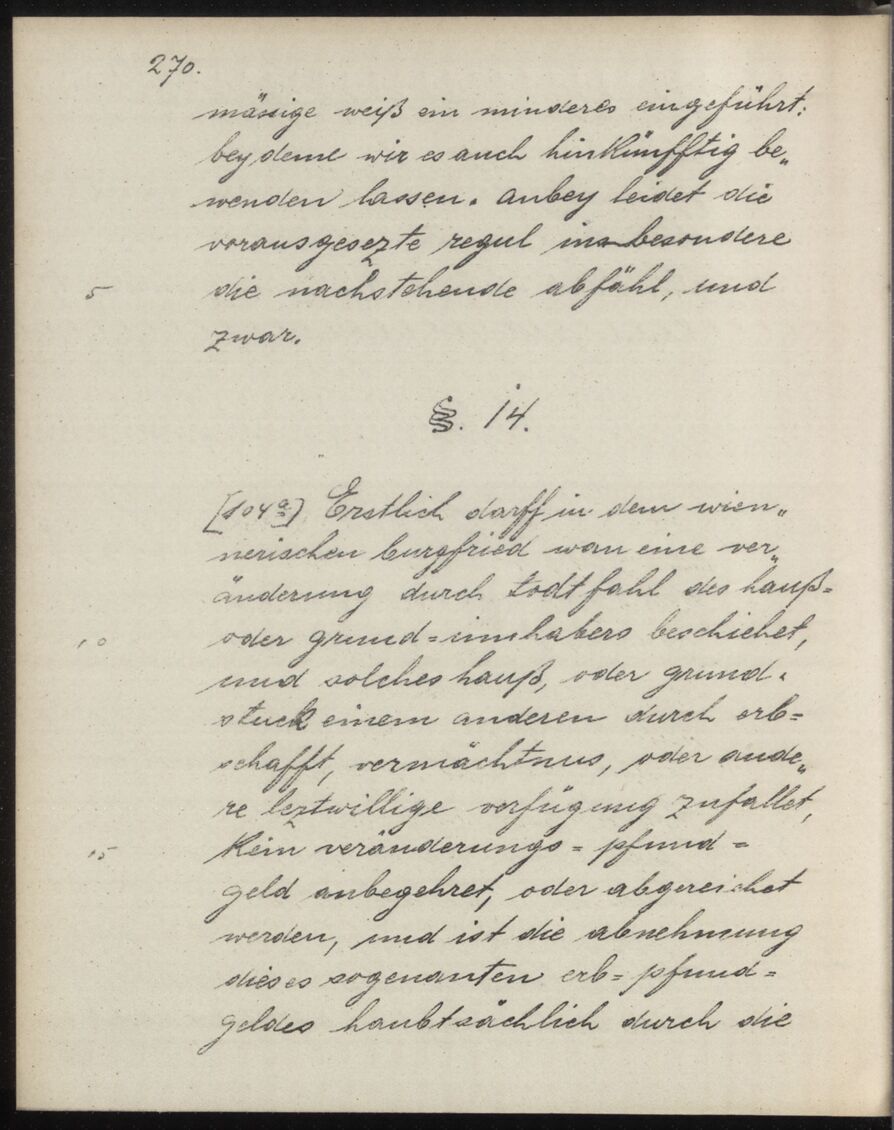 270.
mässige weiß ein minderes eingeführt:
bey deme wir es auch hinkünfftig be„
wenden lassen. anbey leidet die
vorausgesezte regul ins besondere
5 die nachstehende abfähl, und
zwar.
§. 14.
[104a] Erstlich darff in dem wien„
nerischen burgfried wan eine ver„
änderung durch todtfahl des hauß=
10 oder grund=innhabers beschiehet,
und solches hauß, oder grund„
stuck einem anderen durch erb=
schafft, vermächtnus, oder ande„
re leztwillige verfügung zufallet,
15 kein veränderungs=pfund=
geld anbegehret, oder abgereichet
werden, und ist die abnehmung
dieses sogenanten erb=pfund=
geldes haubtsächlich durch die